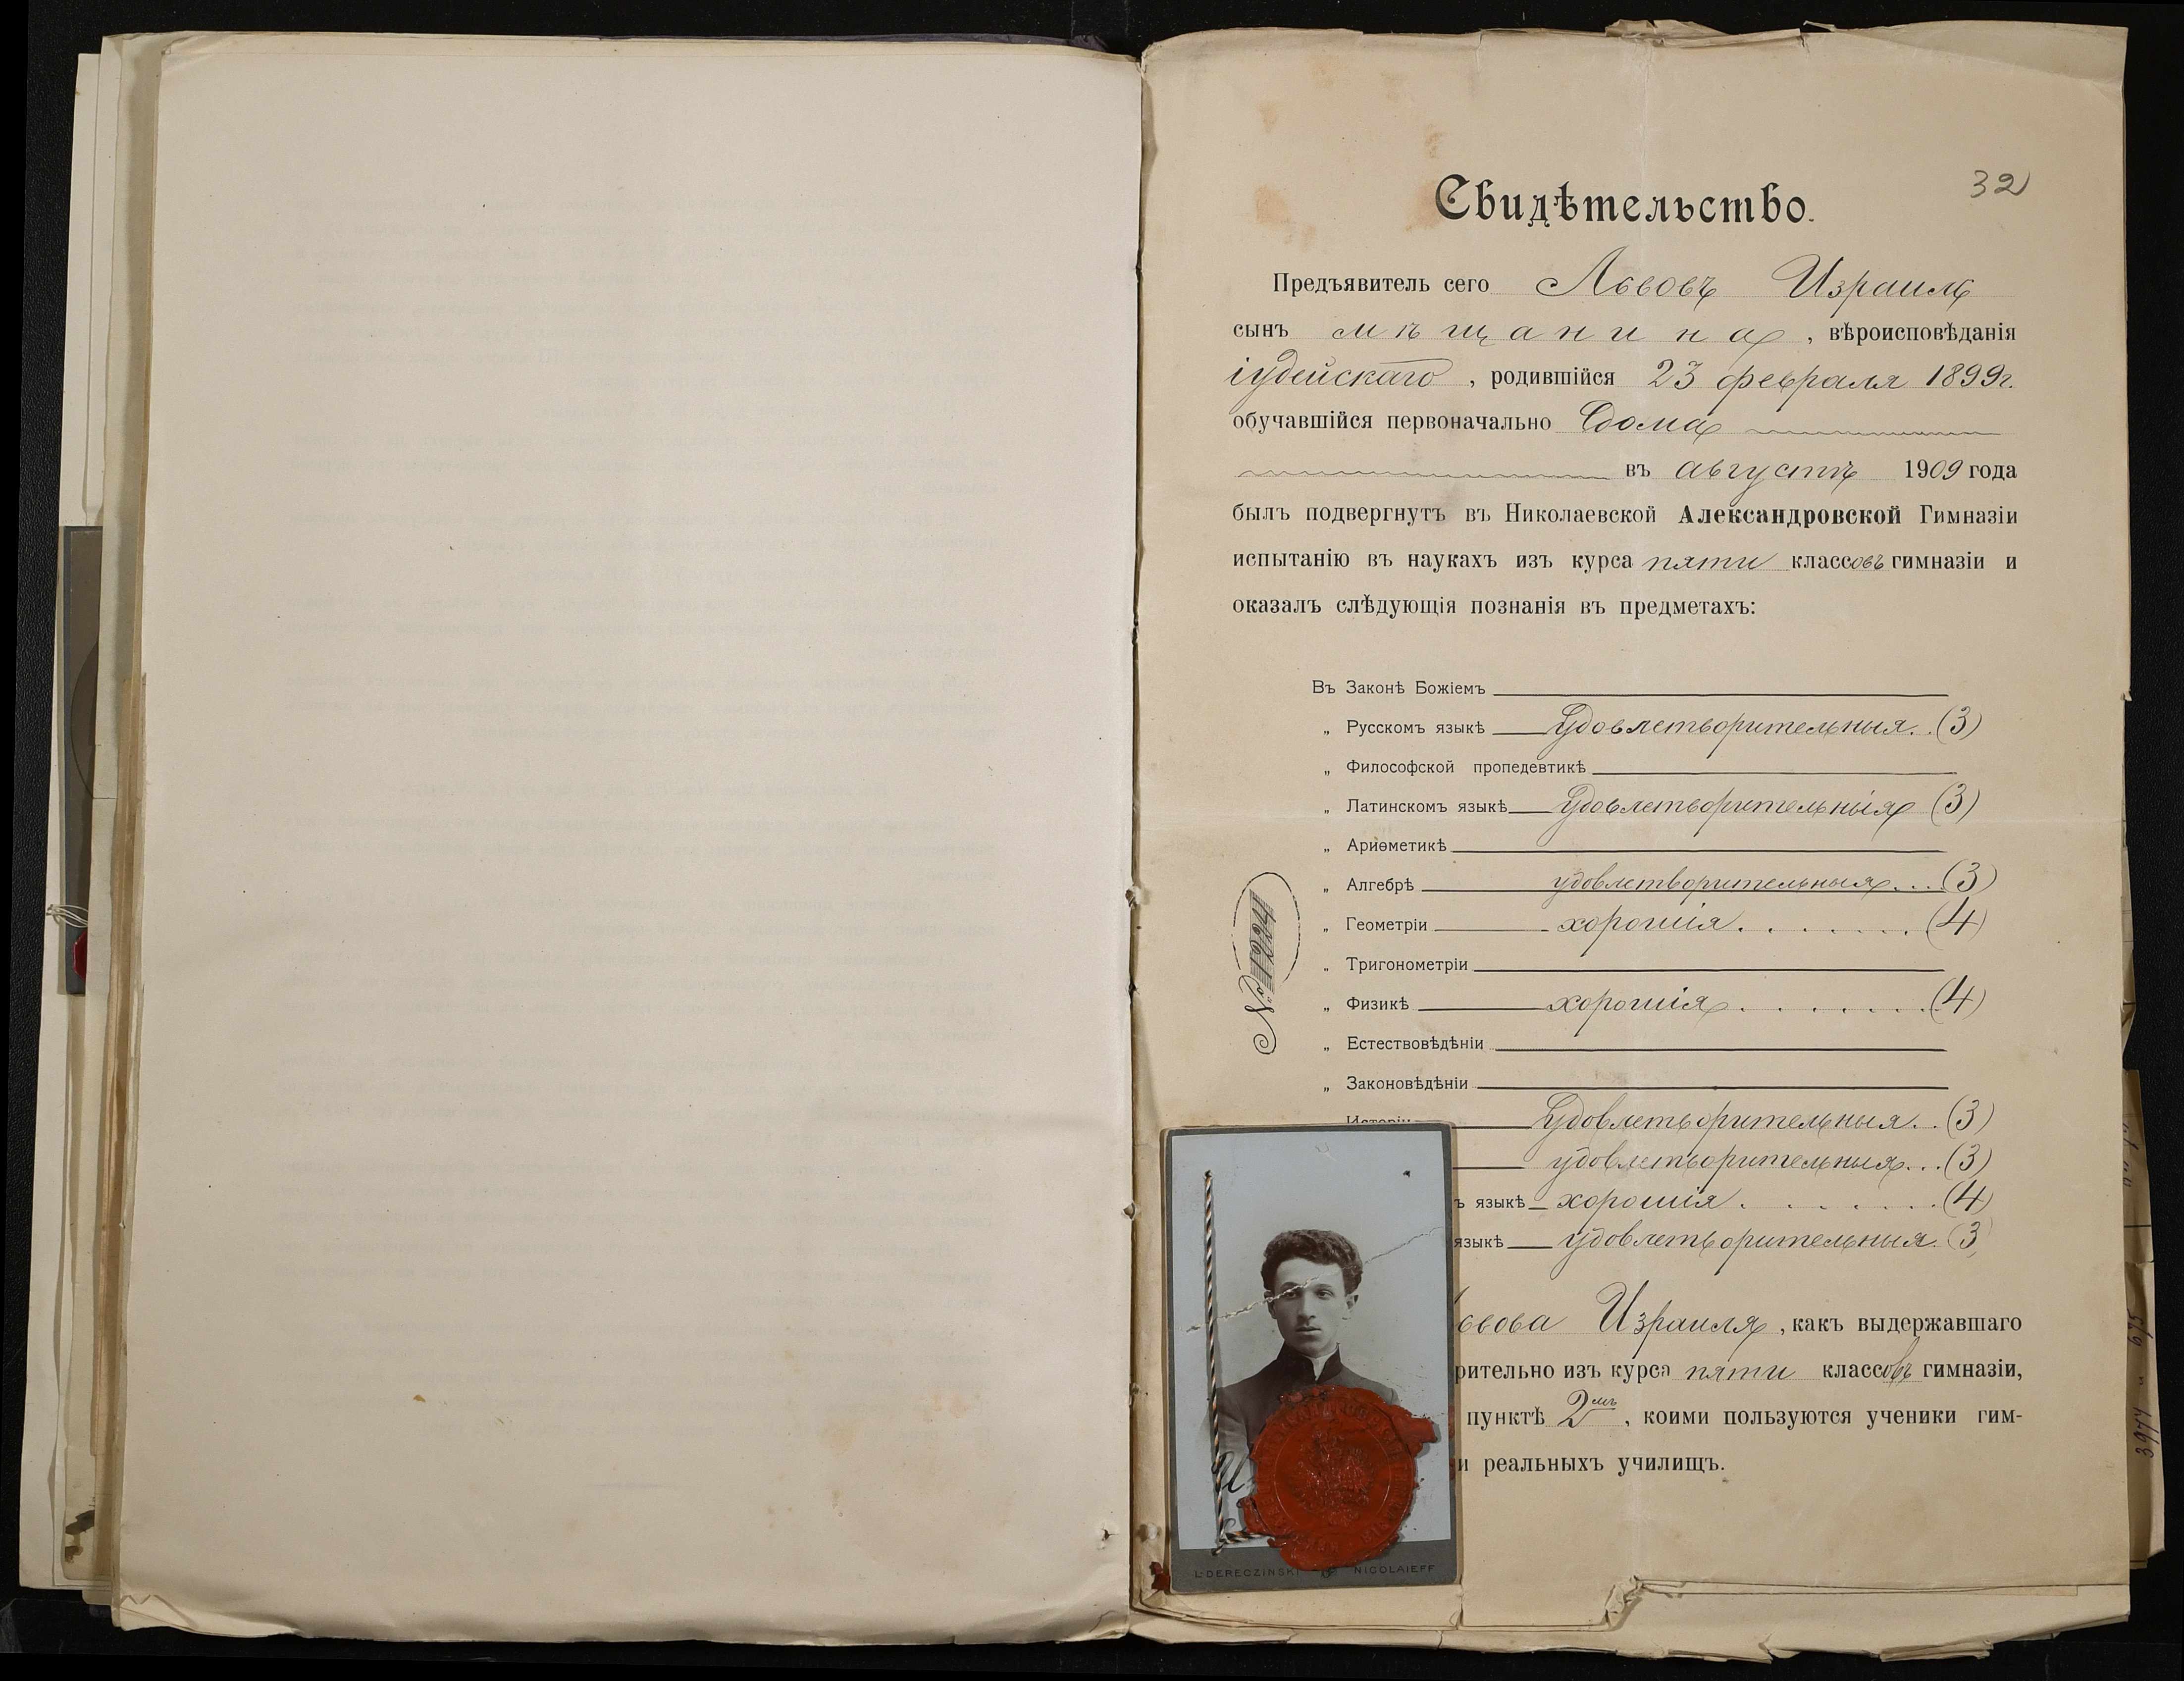 32
Свидѣтельство.
Предъявитель сего Львовъ Израиль
сынъ мѣщанина, вѣроисповѣданія
іудейскаго, родившійся 23 февраля 1899г.
обучавшійся первоначально дома
въ августѣ 1909 года
былъ подвергнутъ въ Николаевской Александровской Гимназіи
испытанію въ наукахъ изъ курса пяти классовъ гимназіи и
оказалъ слѣдующія познанія въ предметахъ:
Въ Законѣ Божіемъ
„ Русскомъ языкѣ Удовлетворительныя. . (3)
„ Философской пропедевтикѣ
„ Латинскомъ языкѣ Удовлетворительныя (3)
„ Ариѳметикѣ
„ Алгебрѣ удовлетворительныя . . . (3)
„ Геометріи хорошія . . . . . . . (4)
„ Тригонометріи
„ Физикѣ хорошія . . . . . . . (4)
„ Естествовѣдѣніи
„ Законовѣдѣніи
Исторіи Удовлетворительныя. . (3)
удовлетворительныя . . . (3)
ъ языкѣ хорошія . . . . . . (4)
языкѣ удовлетворительныя (3)
№ 1224
ьвова Израиля, какъ выдержавшаго
рительно изъ курса пяти классовъ гимназіи,
пунктѣ 2мъ, коими пользуются ученики гим-
и реальныхъ училищъ.
L. DERECZINSKI NICOLAIEFF